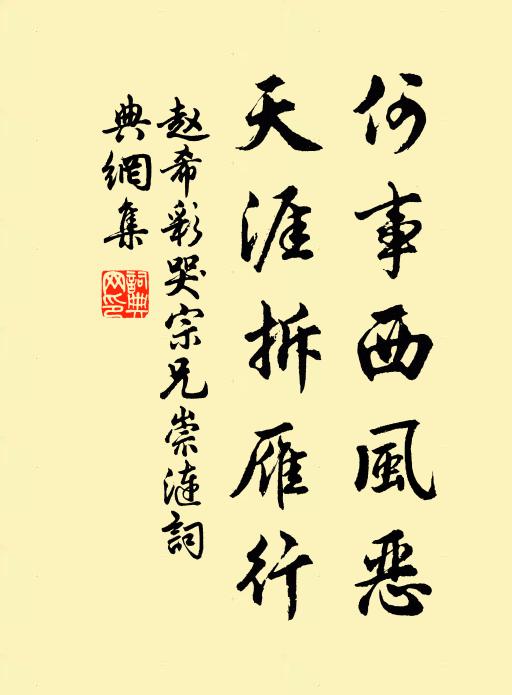 何事西風恶
天涯拆雁行
赵希彩哭宗兄崇涟詞
典網集
詞典网印